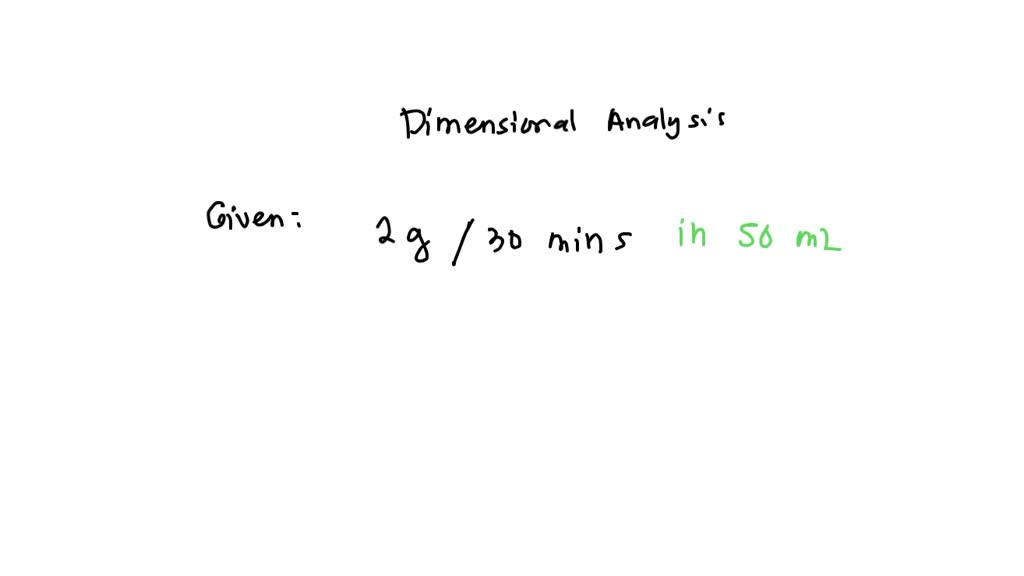 Dimensional Analysis
Given: 2g / 30 mins in 50 mL